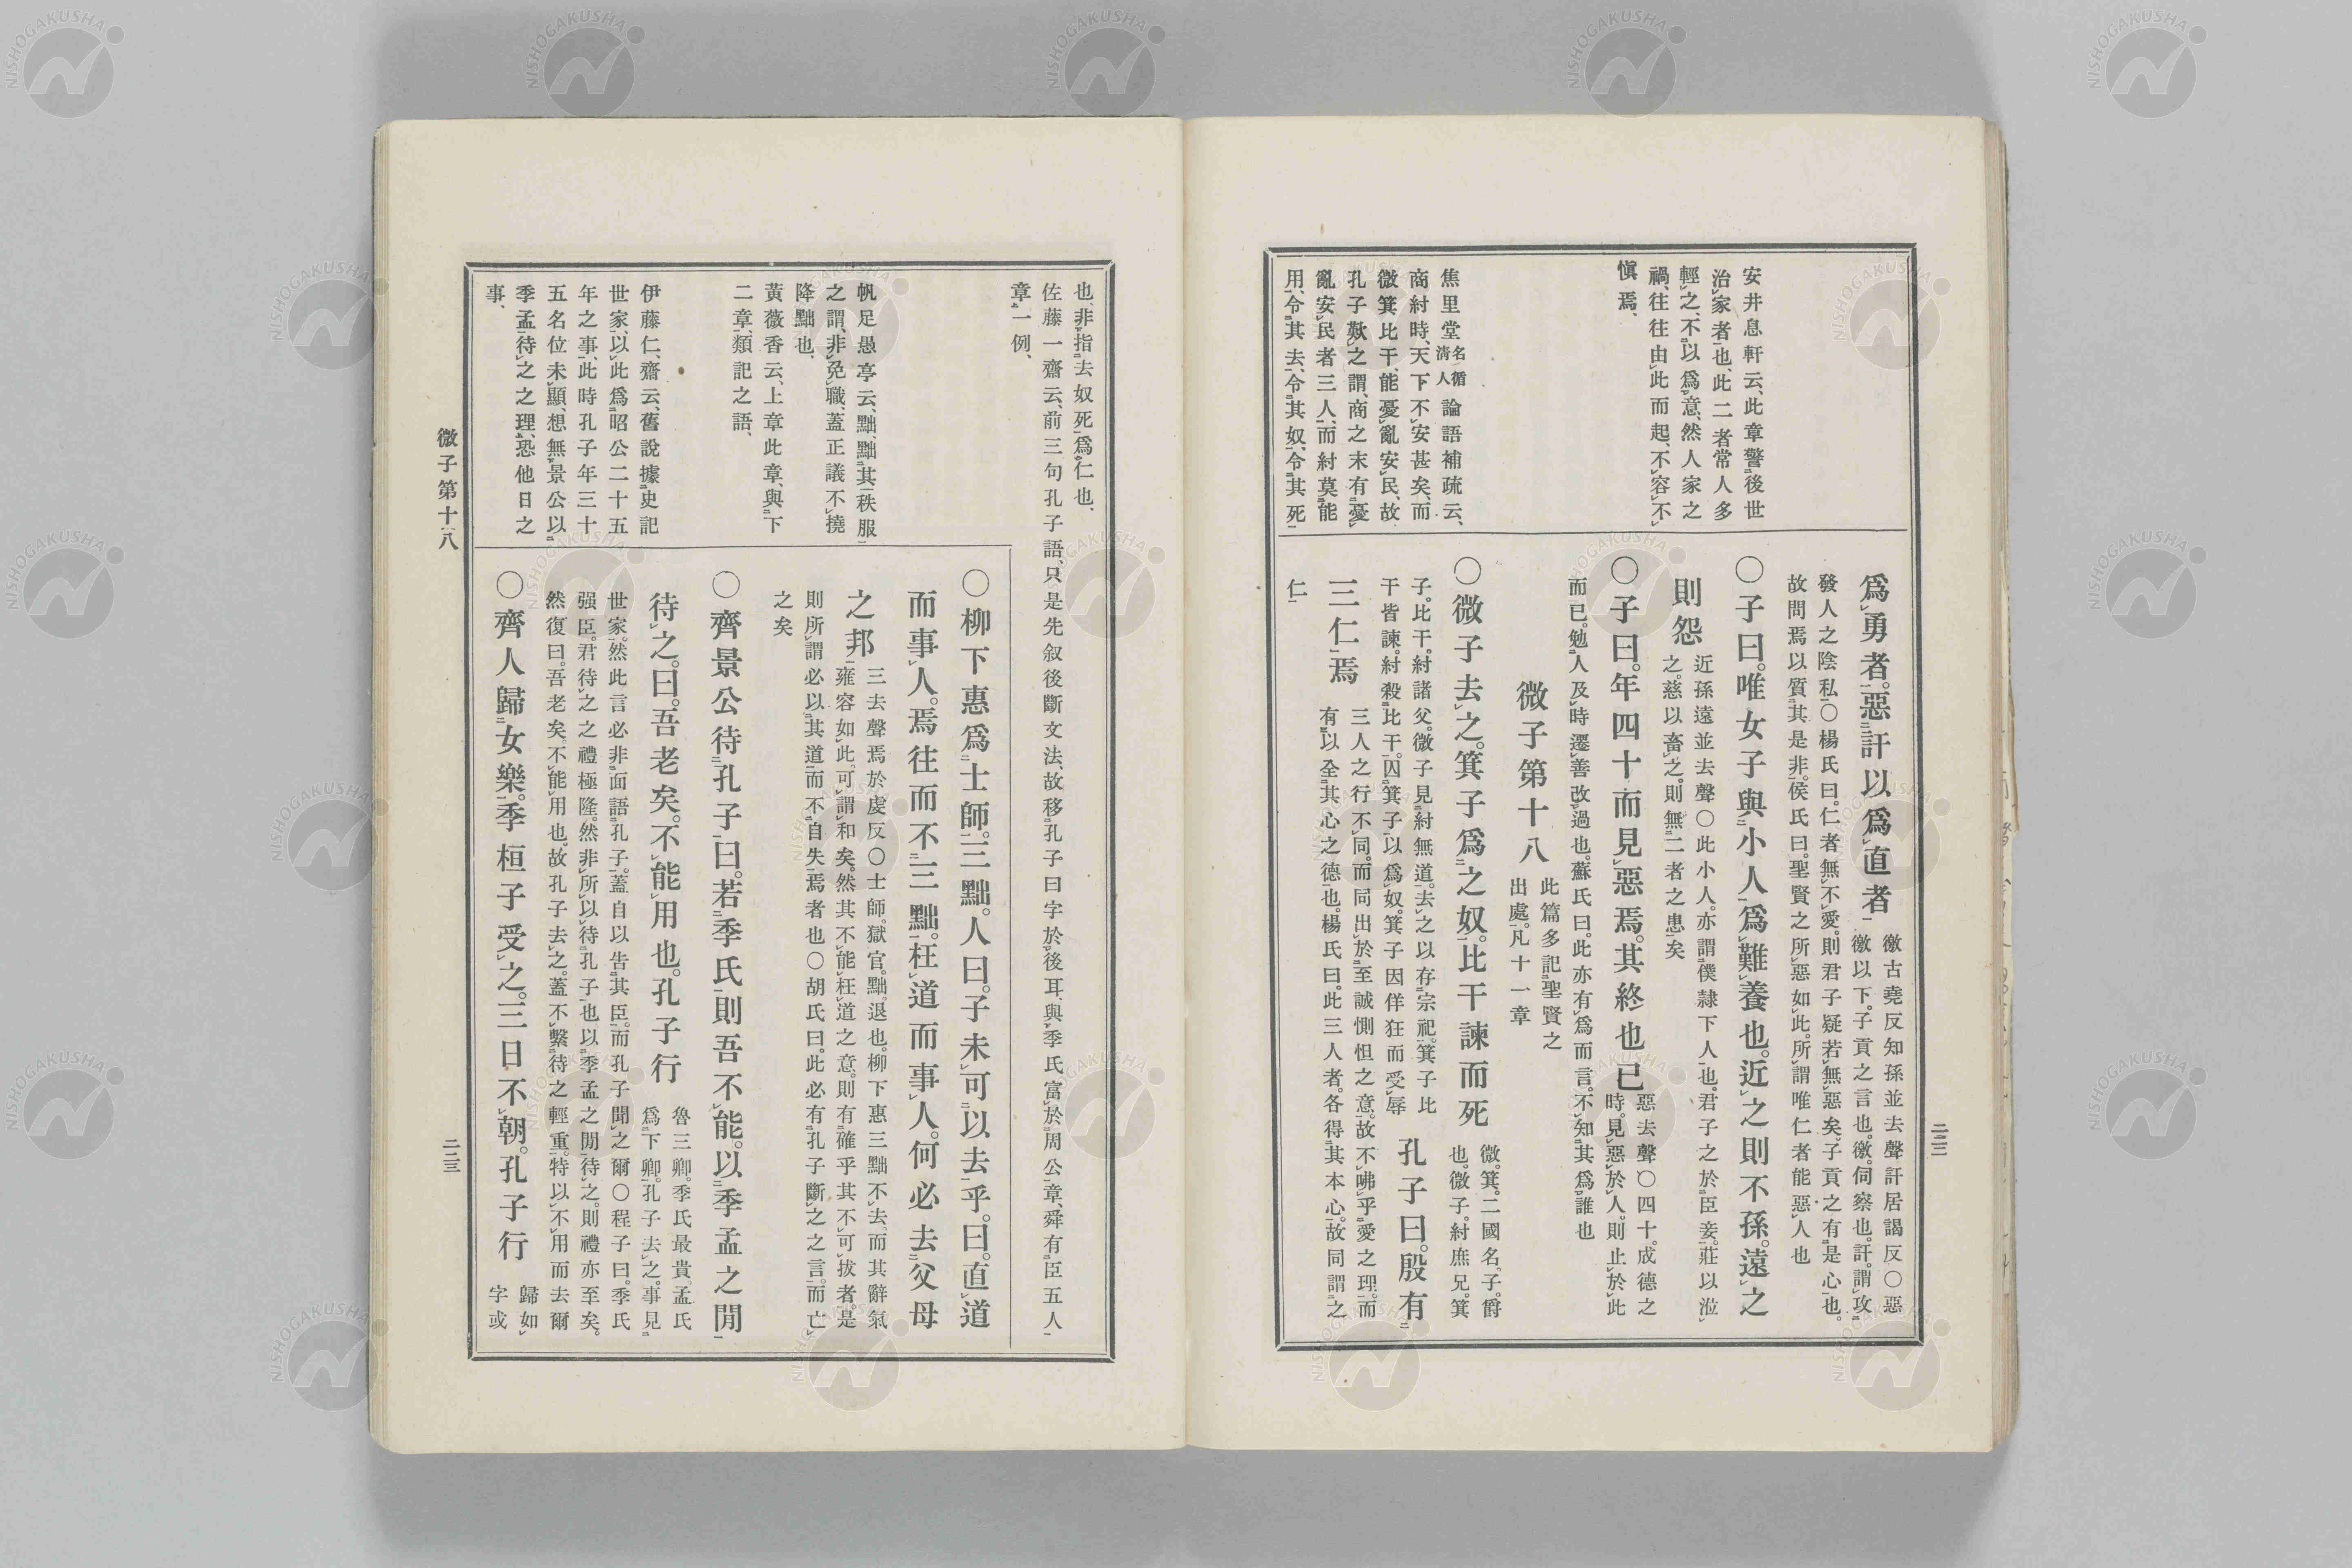 安井息軒云、此章警後世
治家者也、此二者常人多
輕之、不以爲意、然人家之
禍、往往由此而起、不容不
愼焉、
焦里堂名循淸人論語補疏云、
商紂時、天下不安甚矣、而
微箕比干、能憂亂安民、故
孔子歎之謂、商之末有憂
亂安民者三人、而紂莫能
用、令其去、令其奴、令其死
爲勇者。惡訐以爲直者
徼古堯反知孫並去聲訐居謁反〇惡
徼以下。子貢之言也。徼。伺察也。訐。謂攻
發人之陰私〇楊氏曰。仁者無不愛。則君子疑若無惡矣。子貢之有是心也。
故問焉以質其是非。侯氏曰。聖賢之所惡如此。所謂唯仁者能惡人也
〇子曰。唯女子與小人爲難養也。近之則不孫。遠之
則怨
近孫遠並去聲〇此小人。亦謂僕隸下人也。君子之於臣妾。莊以涖
之。慈以畜之。則無二者之患矣
〇子曰。年四十而見惡焉。其終也已
惡去聲〇四十。成德之
時。見惡於人。則止於此
而已。勉人及時遷善改過也。蘇氏曰。此亦有爲而言。不知其爲誰也
微子第十八
此篇多記聖賢之
出處。凡十一章
〇微子去之。箕子爲之奴。比干諫而死
微。箕。二國名。子。爵
也。微子。紂庶兄。箕
子。比干。紂諸父。微子見紂無道。去之以存宗祀。箕子比
干皆諫。紂殺比干。囚箕子以爲奴。箕子因佯狂而受辱
孔子曰。殷有
三仁焉
三人之行不同。而同出於至誠惻怛之意。故不咈乎愛之理。而
有以全其心之德也。楊氏曰。此三人者。各得其本心。故同謂之
仁
二二二
也、非指去奴死爲仁也、
佐藤一齋云、前三句孔子語、只是先叙後斷文法、故移孔子曰字於後耳、與季氏富於周公章、舜有臣五人
章一例、
帆足愚亭云、黜、黜其秩服
之謂、非免職、蓋正議不撓
降黜也、
黃薇香云、上章此章、與下
二章、類記之語、
伊藤仁齋云、舊說據史記
世家、以此爲昭公二十五
年之事、此時孔子年三十
五名位未顯、想無景公以
季孟待之之理、恐他日之
事、
〇柳下惠爲士師。三黜。人曰。子未可以去乎。曰。直道
而事人。焉往而不三黜。枉道而事人。何必去父母
之邦
三去聲焉於虔反〇士師。獄官。黜。退也。柳下惠三黜不去。而其辭氣
雍容如此。可謂和矣。然其不能枉道之意。則有確乎其不可拔者。是
則所謂必以其道而不自失焉者也〇胡氏曰。此必有孔子斷之之言。而亡
之矣
〇齊景公待孔子曰。若季氏則吾不能。以季孟之閒
待之。曰。吾老矣。不能用也。孔子行
魯三卿。季氏最貴。孟氏
爲下卿。孔子去之。事見
世家。然此言必非面語孔子。蓋自以告其臣。而孔子聞之爾〇程子曰。季氏
强臣。君待之之禮極隆。然非所以待孔子也以季孟之閒待之。則禮亦至矣。
然復曰。吾老矣。不能用也。故孔子去之。蓋不繫待之輕重。特以不用而去爾
〇齊人歸女樂。季桓子受之。三日不朝。孔子行
歸如
字或
微子第十八
二二三